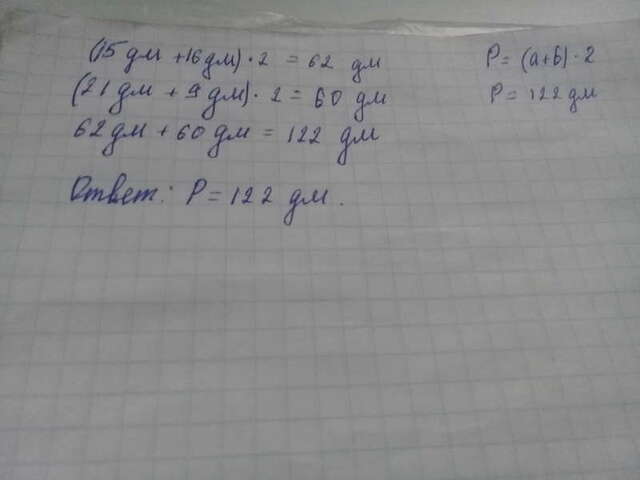 (15 дм + 16 дм) · 2 = 62 дм
(21 дм + 9 дм) · 2 = 60 дм
62 дм + 60 дм = 122 дм
Ответ: P = 122 дм.
P = (a+b) · 2
P = 122 дм